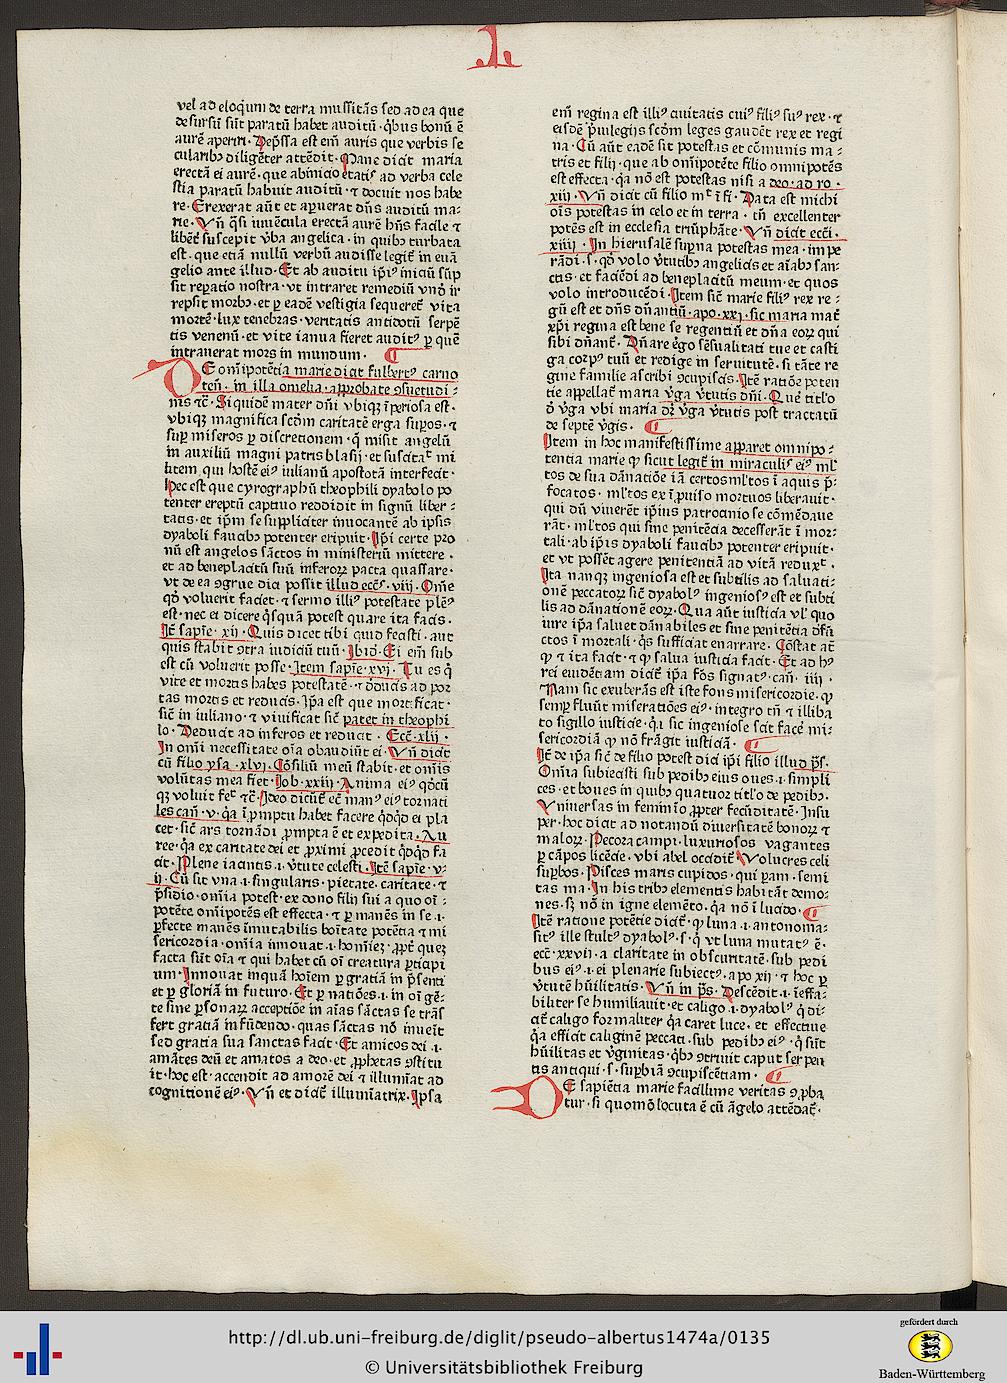 vel ad eloquiū de terra mussitās sed ad ea que
desursū sūt paratū habet auditū · q̇bus bonū ē
aurē aperiri · Depssa est em̄ auris que verbis se
cularibꝫ diligēter attēdit · Mane dicit maria
erectā ei aurē · que ab inicio etatis ad verba cele
stia paratū habuit auditū · ⁊ docuit nos habe
re · Erexerat aūt et aperuerat dn̄s auditū ma-
rie · Vn̄ q̄si iuuēcula erectā aurē hn̄s facile ⁊
libēt᷑ suscepit v̓ba angelica · in quibꝫ turbata
est · que etiā nullū verbū audisse legit᷑ in euā
gelio ante illud · Et ab auditu ip̄i⁹ iniciū sūp
sit reparatio nostra · vt intraret remediū vnd̓ ir
repsit morbꝫ · et ꝑ eadē vestigia sequeret᷑ vita
mortē · lux tenebras · veritatis antidotū serpē
tis venenū · et vite ianua fieret auditꝰ ꝑ quē
intrauerat mors in mundum · ¶
DE om̄ipotētia marie dicit fulbertꝰ carno
teñ · in illa omelia · approbate ꝯsuetudi-
nis ⁊c̄ · Siquidē mater dn̄i vbiqꝫ īperiosa est ·
vbiqꝫ magnifica scd̓m caritatē erga suꝑos · ⁊
suꝑ miseros ꝑ discretionem · q̄ misit angelū
in auxiliū magni patris blasij · et suscitat᷑ mi
litem qui hostē eiꝰ iulianū apostotā interfecit ·
Hec est que cyrographū theophili dyabolo po
tenter ereptū captiuo reddidit in signū liber-
tatis · et ip̄m se suppliciter inuocantē ab ipsis
dyaboli faucibꝫ potenter eripuit · Ip̄i certe pro
nū est angelos sāctos in ministeriū mittere ·
et ad beneplacitū suū inferorꝝ pacta quassare ·
vt de ea ꝯgrue dici possit illud eccs̄ · viij · Om̄e
qd̓ voluerit faciet · ⁊ sermo illiꝰ potestate plenꝰ
est · nec ei dicere q̄squā potest quare ita facis ·
It̄ sapīe · xij · Quis dicet tibi quid fecisti · aut
quis stabit ꝯtra iudiciū tuū · Ibid̓ · Ei em̄ sub
est cū voluerit posse · Item sapīe · xvj · Tu es q̄
vite et mortis habes potestatē · ⁊ deducis ad por
tas mortis et reducis · Ip̄a est que mortificat ·
sic̄ in iuliano · ⁊ viuificat sic̄ patet in theophi
lo · Deducit ad inferos et reducit · Ecc̄ · xlij ·
In om̄i necessitate oīa obaudiūt ei · Vn̄ dicit
cū filio ysa · xlvj · Cōsiliū meū stabit · et om̄is
volūtas mea fiet · Iob · xxiij · Anima eiꝰ qd̓cū
qꝫ voluit fec̄ ⁊c̄ · Ideo dicūt᷑ ec̄ manꝰ eiꝰ tornati
les cañ · v · q̇a ī ꝓmptu habet facere q̇dq̇d ei pla
cet · sic̄ ars tornādi ꝓmpta ē et expedita · Au
ree · q̇a ex caritate dei et ꝓximi ꝓcedit q̇dq̇d fa
cit · Plene iacintis · i · v̓tute celesti · Itē sapīe · v-
ij · Cū sit vna · i · singularis · pietate · caritate · ⁊
p̄sidio · om̄ia potest · ex dono filij sui a quo oī-
potēte om̄ipotēs est effecta · ⁊ ꝑ manēs in se · i ·
ꝑfecte manēs īmutabilis bōitate potētia ⁊ mi
sericordia · om̄ia innouat · i · hoīez · ꝓpt᷑ quez
facta sūt oīa ⁊ qui habet cū oī creatura ꝑticipi
um · Innouat inquā hoīem ꝑ gratiā in p̄senti
et ꝑ gloriā in futuro · Et ꝑ natiōes · i · in oī gē-
te sine ꝑsonarꝝ acceptiōe in aīas sāctas se trās
fert gratiā infūdendo · quas sāctas nō inueīt
sed gratia sua sanctas facit · Et amicos dei · i ·
amātes deū et amatos a deo · et ꝓphetas ꝯstitu
it · hoc est · accendit ad amorē dei ⁊ illumīat ad
cognitionē eiꝰ · Vn̄ et dicit᷑ illumīatrix · Ipsa
em̄ regina est illiꝰ ciuitatis cuiꝰ filiꝰ suꝰ rex · ⁊
eisdē p̄uilegijs scd̓m leges gaudēt rex et regi
na · Cū aūt eadē sit potestas et cōmunis ma-
tris et filij · que ab om̄ipotēte filio omnipotēs
est effecta · q̇a nō est potestas nisi a deo · ad ro ·
xiij · Vn̄ dicit cū filio mt̄ ī fi · Data est michi
oīs potestas in celo et in terra · tn̄ excellenter
potēs est in ecclesia triūphāte · Vn̄ dicit ecci ·
xiiij · In hierusalē supna potestas mea · impe
rādi · s · qd̓ volo v̓tutibꝫ angelicis et aīabꝫ san-
ctis · et faciēdi ad beneplacitū meum · et quos
volo introducēdi · Item sic̄ marie filiꝰ rex re-
gū est et dn̄s dn̄antiū · apo · xxj · sic maria mat᷑
xp̄i regina est bene se regentiū et dn̄a eoꝝ qui
sibi dn̄ant᷑ · Dn̄are ergo sēsualitati tue et casti
ga corpꝰ tuū et redige in seruitutē · si tāte re
gine familie ascribi ꝯcupiscis · Itē ratiōe poten
tie appellat᷑ maria v̓ga v̓tutis dn̄i · Que titl̓o
d̓ v̓ga vbi maria dr̄ v̓ga v̓tutis post tractatū
de septē v̓gis · ¶
Item in hoc manifestissime apparet omnipo-
tentia marie ꝙ sicut legit᷑ in miraculis eiꝰ ml̓
tos de sua dānatiōe iā certos ml̓tos ī aquis p̄-
focatos · ml̓tos ex īprouiso mortuos liberauit ·
qui dū viuerēt ip̄ius patrocinio se cōmēdaue
rāt · ml̓tos qui sine penitēcia decesserāt ī mor-
tali · ab ip̄is dyaboli faucibꝫ potenter eripuit ·
et vt possēt agere penitentiā ad vitā reduxit ·
Ita nanqꝫ ingeniosa est et subtilis ad saluati-
onē peccatorꝝ sic̄ dyabolꝰ ingeniosꝰ est et subti
lis ad dānationē eoꝝ · Qua aūt iusticia vl̓ quo
iure ip̄a saluet dānabiles et sine penitētia d̓fū
ctos ī mortali · q̄s sufficiat enarrare · Cōstat at̄
ꝙ ⁊ ita facit · ⁊ ꝙ salua iusticia facit · Et ad hꝰ
rei euidētiam dicit᷑ ip̄a fōs signatꝰ · cañ · iiij ·
Nam sic exuberās est iste fons misericordie · ꝙ
semꝑ fluūt miseratiōes eiꝰ · integro tn̄ ⁊ illiba
to sigillo iusticie · q̇a sic ingeniose scit facē mi-
sericordiā ꝙ nō frāgit iusticiā · ¶
It̄ de ip̄a sic̄ de filio potest dici ip̄i filio illud p̄s ·
Omīa subiecisti sub pedibꝫ eius oues · i · simpli
ces · et boues in quibꝫ quatuor titl̓o de pedibꝫ ·
Vniuersas in feminīo ꝓpter fecūditatē · Insu
per · hoc dicit ad notandū diuersitatē bonorꝝ ⁊
malorꝝ · Pecora campi · luxuriosos vagantes
ꝑ cāpos licēcie · vbi abel occidit᷑ · Volucres celi
suꝑbos · Pisces maris cupidos · qui ꝑam · semi
tas ma · In his tribꝫ elementis habitāt demo-
nes · sꝫ nō in igne elemēto · q̇a nō ī lucido · ¶
Itē ratione potētie dicit᷑ · ꝙ luna · i · antonoma-
sitꝰ ille stultꝰ dyabolꝰ · s · q̄ vt luna mutatꝰ ē ·
ecc̄ · xxvij · a claritate in obscuritatē · sub pedi
bus eiꝰ · i · ei plenarie subiectꝰ · apo · xij · ⁊ hoc ꝑ
v̓tutē hūilitatis · Vn̄ in p̄s · Descēdit · i · īeffa-
biliter se humiliauit · et caligo · i · dyabolꝰ q̄ di-
cit᷑ caligo formaliter q̇a caret luce · et effectiue
q̇a efficit caliginē peccati · sub pedibꝫ eiꝰ · q̄ sūt
hūilitas et v̓ginitas · q̇bꝫ ꝯtriuit caput serpen
tis antiqui · s · suꝑbiā ꝯcupiscētiam · ¶
DE sapiētia marie facillime veritas ꝯꝓba
tur · si quomō locuta ē cū āgelo attēdat᷑ ·
http://dl.ub.uni-freiburg.de/diglit/pseudo-albertus1474a/0135
© Universitätsbibliothek Freiburg
gefördert durch
Baden-Württemberg